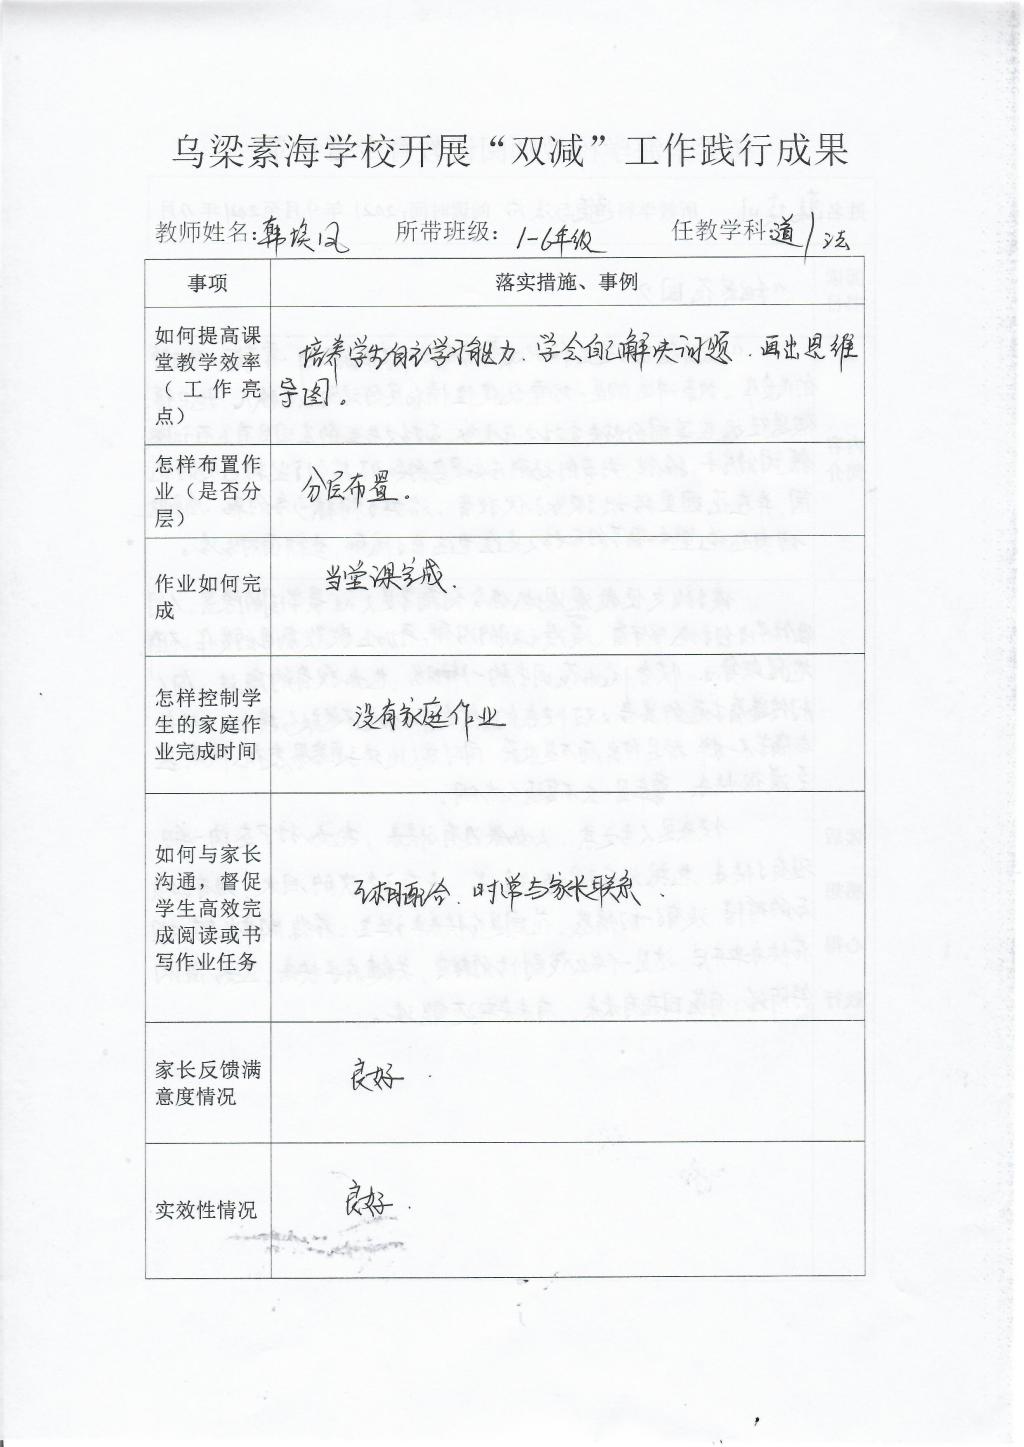 乌梁素海学校开展“双减”工作践行成果
教师姓名:韩埃凤 所带班级: 1-6年级 任教学科:道法
事项 落实措施、事例
如何提高课
堂教学效率
(工作亮
点)
培养学生自主学习能力、学会自己解决问题、画出思维
导图。
怎样布置作
业(是否分
层)
分层布置。
作业如何完
成
当堂课完成.
怎样控制学
生的家庭作
业完成时间
没有家庭作业
如何与家长
沟通,督促
学生高效完
成阅读或书
写作业任务
互相配合、时常与家长联系.
家长反馈满
意度情况
良好.
实效性情况
良好.